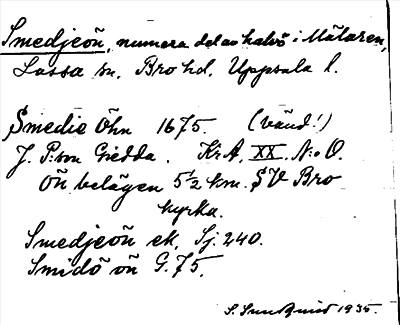 Smedjeön, numera del av halvö i Mälaren,
Lossa sn, Bro hd, Uppsala l.
Smedie Öhn 1675. (vänd!)
J. P:son Gedda. KrA, XX. N:o O.
Ön belägen 5½ km. SV Bro
kyrka.
Smedjeön ek. Sj. 240.
Smidö ön G. 75.
S. Sundquist 1935.